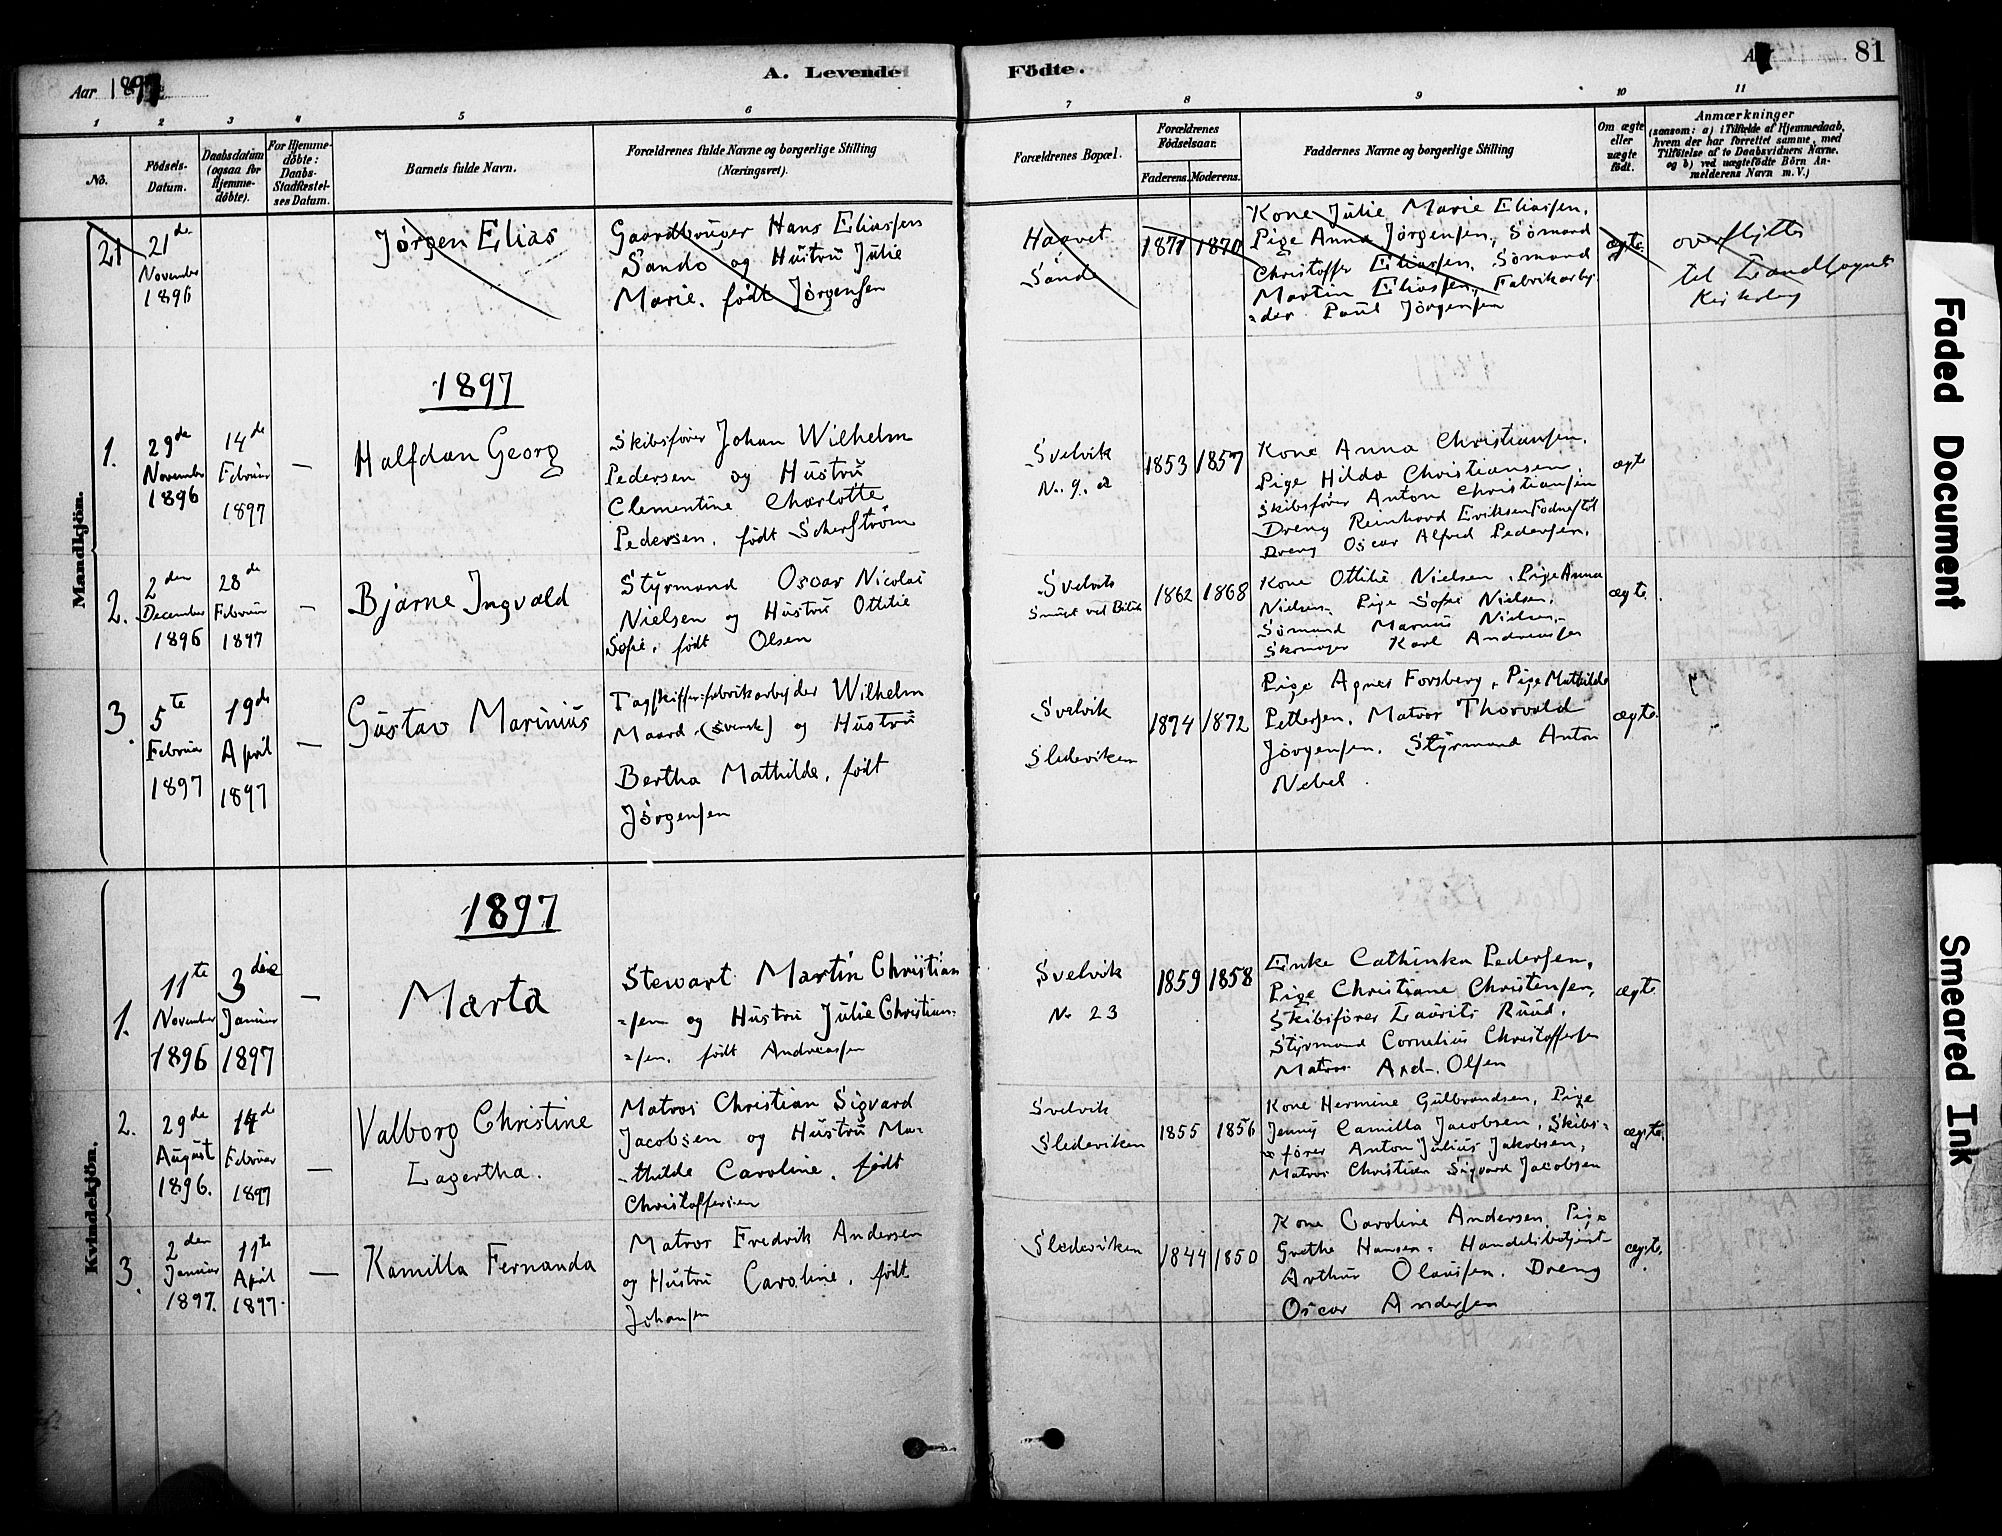 Aar 1897
A. Levende Fødte.
81
1 2 3 4 5 6 7 8 9 10 11
No.
Fødsels-
Datum.
Daabsdatum
(ogsaa for
Hjemme-
døbte).
For Hjemme-
døbte:
Daabs-
Stadfæstel-
ses Datum.
Barnets fulde Navn.
Forældrenes fulde Navne og borgerlige Stilling
(Næringsvei).
Forældrenes Bopæl.
Forældrenes
Fødselsaar.
Faderens. Moderens.
Faddernes Navne og borgerlige Stilling
Om ægte
eller
uægte
født.
Anmærkninger
(saasom: a) i Tilfælde af Hjemmedaab,
hvem der har forrettet samme, med
Tilføielse af to Daabsvidners Navne,
og b) ved uægtefødte Børn An-
melderens Navn m. V.)
Mandkjøn.
21
21de
November
1896
Jørgen Elias
Gaardbruger Hans Eliassen
Sando og Hustru Julie
Marie, født Jørgensen
Haavet
Sande
1871 1870
Kone Julie Marie Eliassen,
Pige Anna Jørgensen, Sømand
Christoffer Eliassen, Sømand
Martin Eliassen, Fabrikarbej-
der Paul Jørgensen
ægte
overflyttes
til Landsognets
Kirkebog
1897
1.
29de
November
1896
14de
Februar
1897
—
Halfdan Georg
Skibsfører Johan Wilhelm
Pedersen og Hustru
Clementine Charlotte
Pedersen, født Scherstrøm
Svelvik
No. 9. a
1853 1857
Kone Anna Christiansen.
Pige Hilda Christiansen,
Skibsfører Anton Christiansen
Dreng Reinhard Eriksen
Dreng Oscar Alfred Pedersen.
ægte
2.
2den
December
1896
28de
Februar
1897
—
Bjarne Ingvald
Styrmand Oscar Nicolai
Nielsen og Hustru Ottilie
Sofie, født Olsen
Svelvik
1862 1868
Kone Ottilie Nielsen, Pige Anna
Nielsen, Pige Sofie Nielsen,
Sømand Marius Nielsen,
Skomager Karl Andreassen
ægte.
3.
5te
Februar
1897
19de
April
1897
—
Gustav Marinius
Tagskiffer-fabrikarbejder Wilhelm
Maard (svensk) og Hustru
Bertha Mathilde, født
Jørgensen
Svelvik
Sledeviken
1874 1872
Pige Agnes Forsberg, Pige Mathilde
Pettersen, Matros Thorvald
Jørgensen, Styrmand Anton
Nebel.
ægte.
Kvindekjøn.
1897
1.
11te
November
1896
3die
Januar
1897
—
Marta
Stewart Martin Christian-
=sen og Hustru Julie Christian-
=sen, født Andreassen
Svelvik
No 23
1859 1858
Enke Cathinka Pedersen,
Pige Christiane Christensen,
Skibsfører Laurits Ruud,
Styrmand Cornelius Christoffersen
Matros And. Olsen
ægte.
2.
29de
August
1896.
14de
Februar
1897
—
Valborg Christine
Lagertha.
Matros Christian Sigvard
Jacobsen og Hustru Ma-
-thilde Caroline, født
Christoffersen
Svelvik
Sledeviken
1855 1856
Kone Hermine Gulbrandsen, Pige
Jenny Camilla Jacobsen, Skibs-
=fører Anton Julius Jakobsen,
Matros Christian Sigvard Jacobsen
ægte.
3.
2den
Januar
1897.
11te
April
1897.
—
Kamilla Fernanda
Matros Fredrik Andersen
og Hustru Caroline, født
Johansen
Sledeviken
1844 1850
Kone Caroline Andersen, Pige
Grethe Hansen, Handelsbetjent
Arthur Olaussen, Dreng
Oscar Andersen
ægte.
Faded Document
Smeared Ink